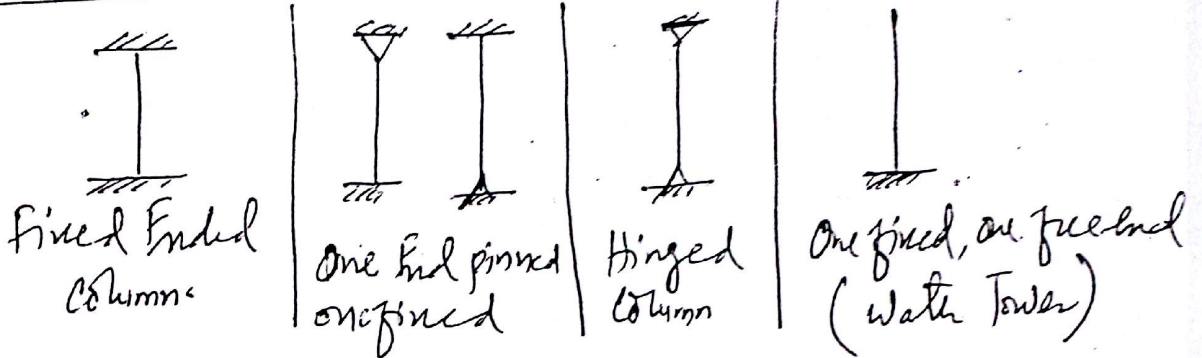 Fixed Ended
Column
One End pinned
one fixed
Hinged
Column
One fixed, one free end
(Water Tower)